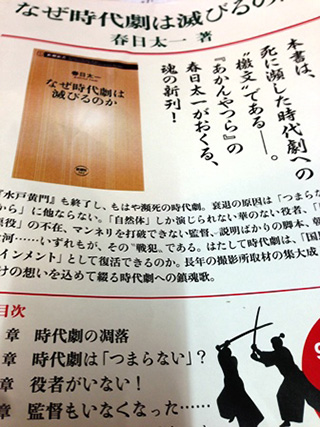 なぜ時代劇は滅びるの
春日太一 著
春日太一
なぜ時代劇は
滅びるのか
本書は、
死に瀕した時代劇への
“檄文”である――。
『あかんやつら』の
春日太一がおくる、
魂の新刊！
『水戸黄門』も終了し、もはや瀕死の時代劇。衰退の原因は「つまらな
から」に他ならない。「自然体」しか演じられない華のない役者、「
悪役」の不在、マンネリを打破できない監督、説明ばかりの脚本、朝
河……いずれもが、その“戦犯”である。はたして時代劇は、「国
インメント」として復活できるのか。長年の撮影所取材の集大成
けの想いを込めて綴る時代劇への鎮魂歌。
目次
章 時代劇の凋落
章 時代劇は「つまらない」？
章 役者がいない！
章 監督もいなくなった……